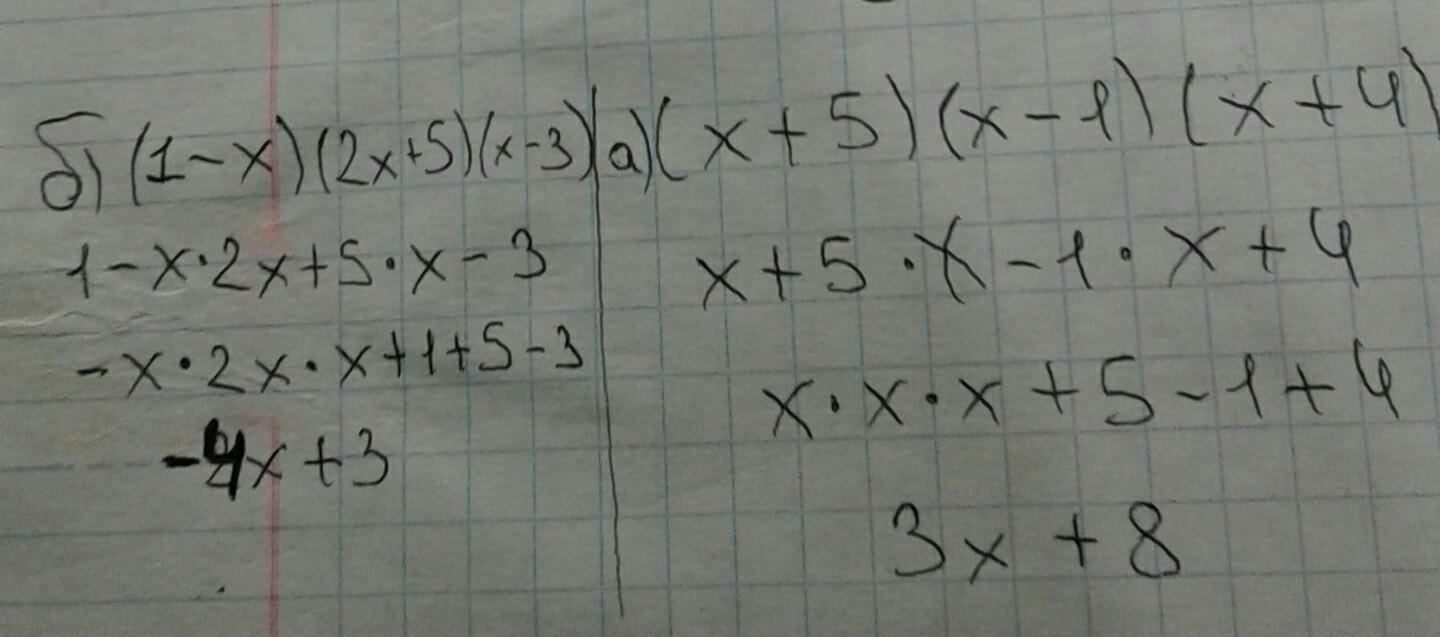 б) (1-x)(2x+5)(x-3)
1-x·2x+5·x-3
-x·2x·x+1+5-3
x+3
а) (x+5)(x-1)(x+4)
x+5·x-1·x+4
x·x·x+5-1+4
3x+8